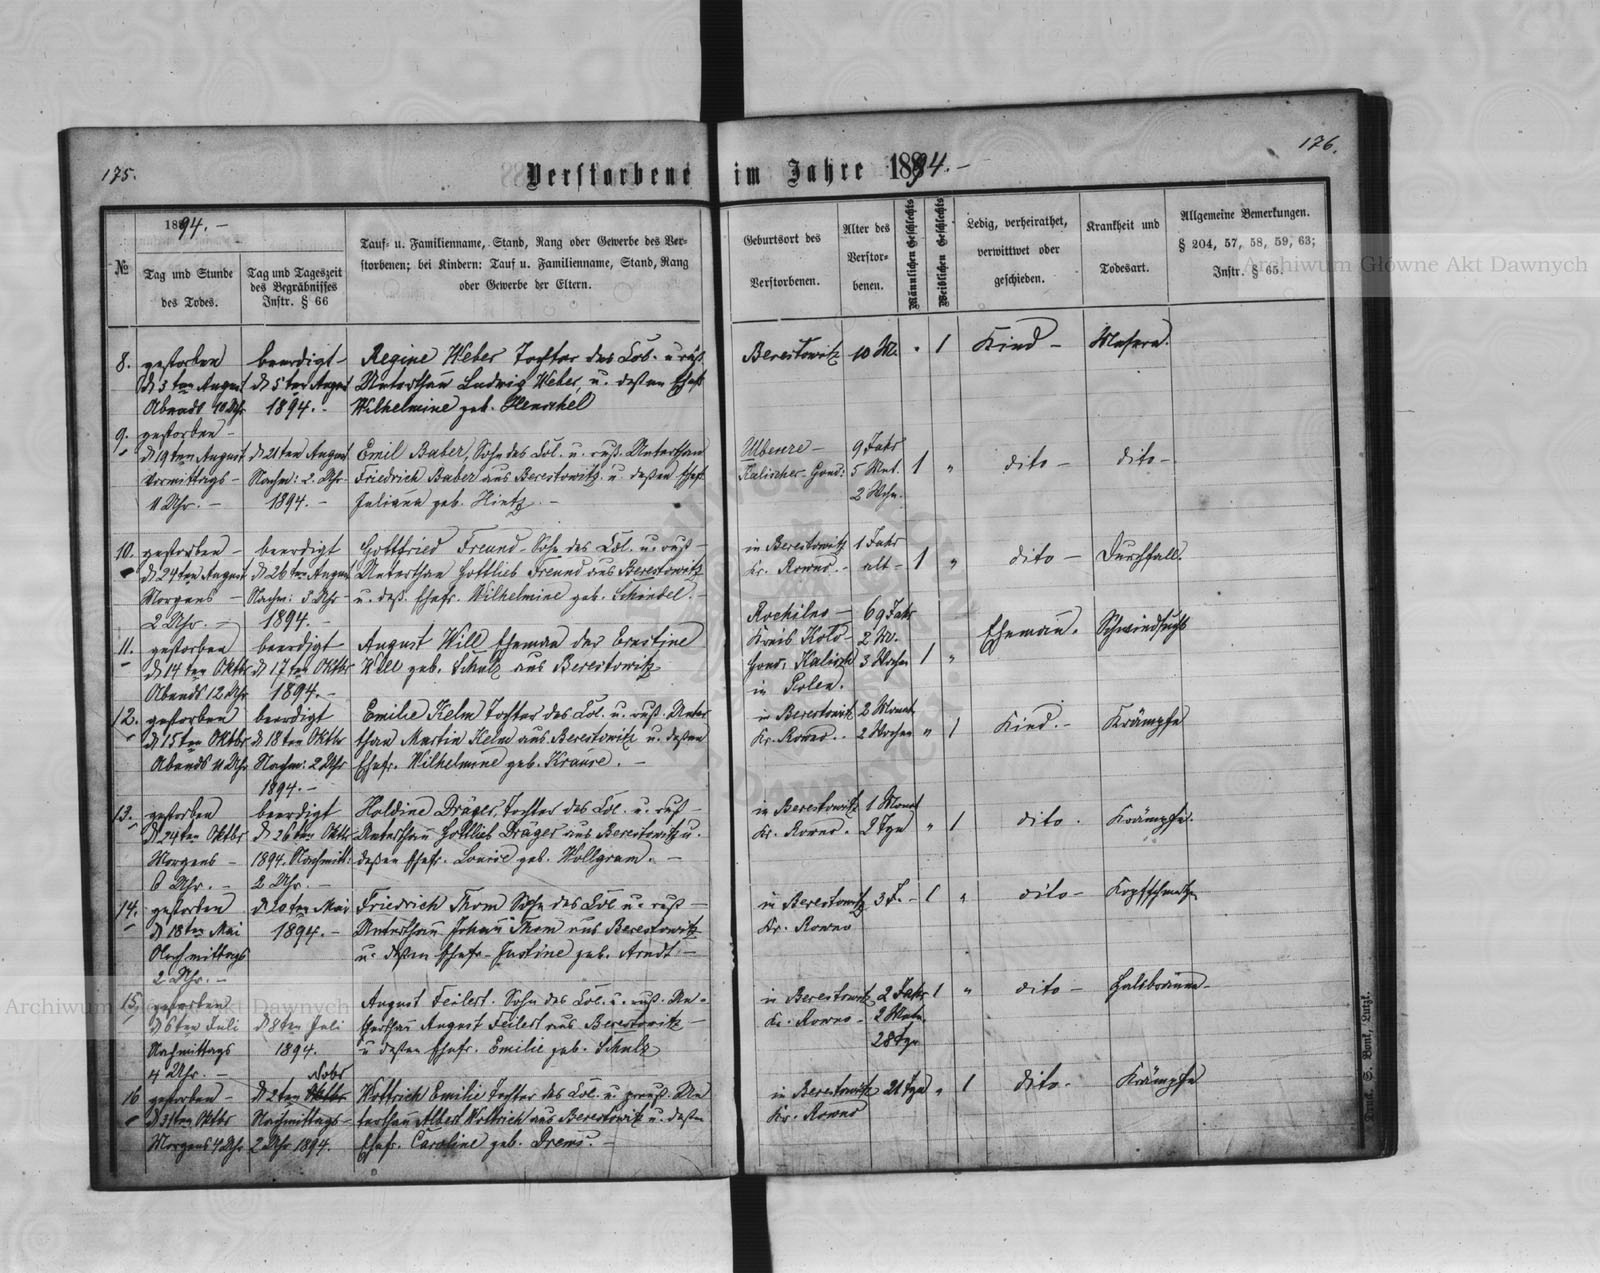 175.
176.
Verstorbene im Jahre 1894. -
1894. -
№
Tag und Stunde
des Todes.
Tag und Tageszeit
des Begräbnisses
Instr. § 66
Tauf- u. Familienname, Stand, Rang oder Gewerbe des Ver-
storbenen; bei Kindern: Tauf u. Familienname, Stand, Rang
oder Gewerbe der Eltern.
Geburtsort des
Verstorbenen.
Alter des
Verstor-
benen.
Männlichen Geschlechts
Weiblichen Geschlechts
Ledig, verheirathet,
verwittwet oder
geschieden.
Krankheit und
Todesart.
Allgemeine Bemerkungen.
§ 204, 57, 58, 59, 63;
Instr. § 65.
Archiwum Główne Akt Dawnych
8. gestorben beerdigt - Regine Weber Tochter des Col. u. russ. Berestowitz 10 M. " 1 Kind - Masern.
d 3ten August d 5ten August Unterthan Ludwig Weber, u. dessen Ehefr.
Abends 10 Uhr 1894. - Wilhelmine geb. Henschel
9. gestorben -
d 19ten August d 21ten August Emil Baber, Sohn des Col. u. russ. Unterthan 9 Jahr
vormittags - Nachm: 2 Uhr - Friedrich Baber aus Berestowitz u. dessen Ehefr. Kalischer Gouv: 5 Mnt. 1 " dito - dito -
11 Uhr. - 1894. - Juliana geb. Hintz - 2 Wchn.
10. gestorben - beerdigt Gottfried Freund - Sohn des Col. u. russ - in Berestowitz 1 Jahr
d 24ten August d 26ten August Unterthan Gottlieb Freund aus Berestowitz Kr. Rowno. - alt - 1 " dito - Durchfall.
Morgens - Nachm: 3 Uhr - u. dess. Ehefr. Wilhelmine geb. Schindel. -
2 Uhr. - 1894. -
11. gestorben beerdigt - August Will Eheman der Ernstine Kreis Kolo - 69 Jahr 2 M. Eheman. Schwindsucht
d 14ten Oktbr d 17ten Oktbr Will geb. Schulz aus Berestowitz Gouv. Kalisch 3 Wochen 1 "
Abends 12 Uhr 1894. - in Polen.
12. gestorben beerdigt Emilie Kelm Tochter des Col. u. russ. Unter in Berestowitz 2 Monat
d 15ten Oktbr d 18ten Oktbr than Martin Kelm aus Berestowitz u. dessen Kr. Rowno. - 2 Wochen " 1 Kind. - Krämpfe
Abends 11 Uhr Nachm: 2 Uhr Ehefr. Wilhelmine geb. Krause. -
1894. -
13. gestorben beerdigt Holdine Dräger, Tochter des Col. u. russ - in Berestowitz 1 Monat
d 24ten Oktbr d 26ten Oktbr Unterthan Gottlieb Dräger aus Berestowitz u. Kr. Rowno. 2 Tge " 1 dito. Krämpfe.
Morgens - 1894. Nachmitt: dessen Ehefr. Louise geb. Wollgram. -
6 Uhr. - 2 Uhr. -
14. gestorben d 20ten Mai Friedrich Thom Sohn des Col u. russ - in Berestowitz 3 J. - 1 " dito - Kopfschmerzen
d 18ten Mai 1894. - Unterthan Johan Thom aus Berestowitz Kr. Rowno
Nachmittags u. dessen Ehefr. Justine geb. Arndt -
2 Uhr. -
15. gestorben August Feilert. Sohn des Col. u. russ. Un- in Berestowitz 2 Jahr 1 " dito - Halsbräune -
d 6ten Juli d 8ten Juli therthan August Feilert aus Berestowitz - Kr. Rowno - 2 Mntn.
Nachmittags 1894. u dessen Ehefr. Emilie geb. Schulz 28 Tge
4 Uhr. - Nobr
16 gestorben - d 2ten Oktbr Wottrich Emilie Tochter des Col. u. preuss. Un in Berestowitz 21 Tge " 1 dito - Krämpfe
d 31ten Oktbr Nachmittags - terthan Albert Wottrich aus Berestowitz u. dessen Kr. Rowno
Morgens 4 Uhr 2 Uhr 1894. Ehefr. Caroline geb. Drews. -
Archiwum Główne Akt Dawnych
Druck S. Bonk, Lutzk.